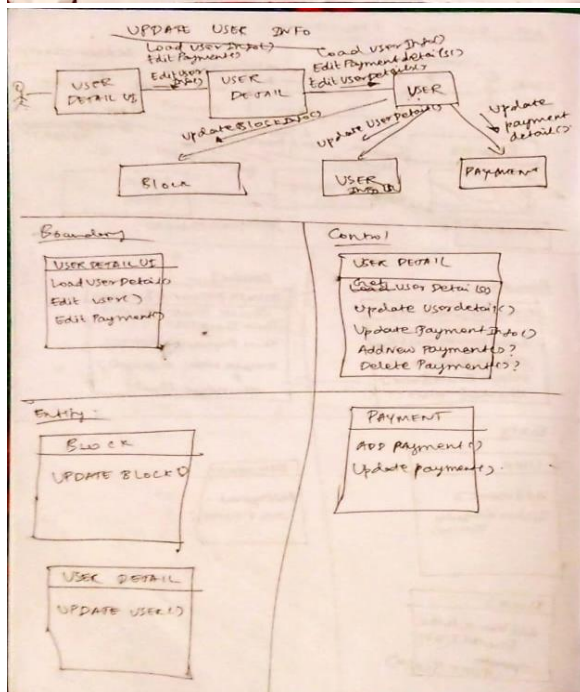 UPDATE USER INFO
Load User Info()
Edit Payment()
Edit User
Info()
Load User Info()
Edit Payment details()
Edit User Details()
USER
DETAIL UI
USER
DETAIL
USER
Update Block Info()
Update User Detail()
Update
payment
detail()
Block
USER
PAYMENT
Boundary
USER DETAIL UI
Load User Detail()
Edit User()
Edit Payment()
Control
USER DETAIL
User Details()
Update Userdetail()
Update Payment Info()
Add New Payment()?
Delete Payment()?
Entity:
BLOCK
UPDATE BLOCK()
PAYMENT
ADD Payment()
Update Payment()
USER DETAIL
UPDATE USER()